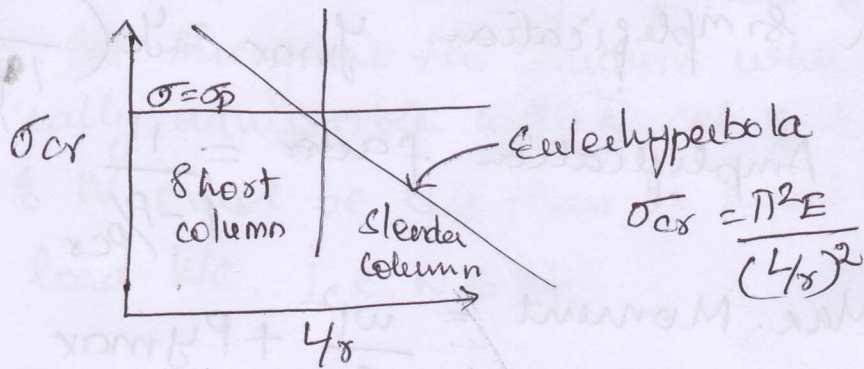 σcr
σ=σp
Short
column
Slender
column
L/r
Eulerhyperbola
σcr = π²E
(L/r)²